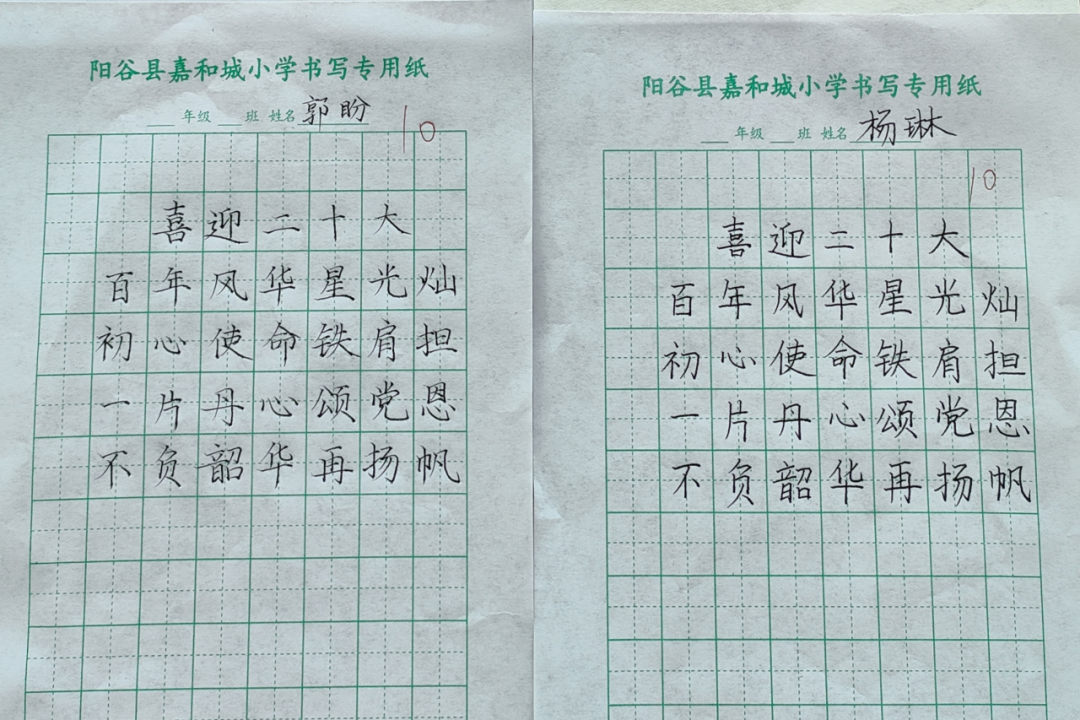 阳谷县嘉和城小学书写专用纸
年级 班 姓名 郭盼
10
喜迎二十大
百年风华星光灿
初心使命铁肩担
一片丹心颂党恩
不负韶华再扬帆
阳谷县嘉和城小学书写专用纸
年级 班 姓名 杨琳
10
喜迎二十大
百年风华星光灿
初心使命铁肩担
一片丹心颂党恩
不负韶华再扬帆